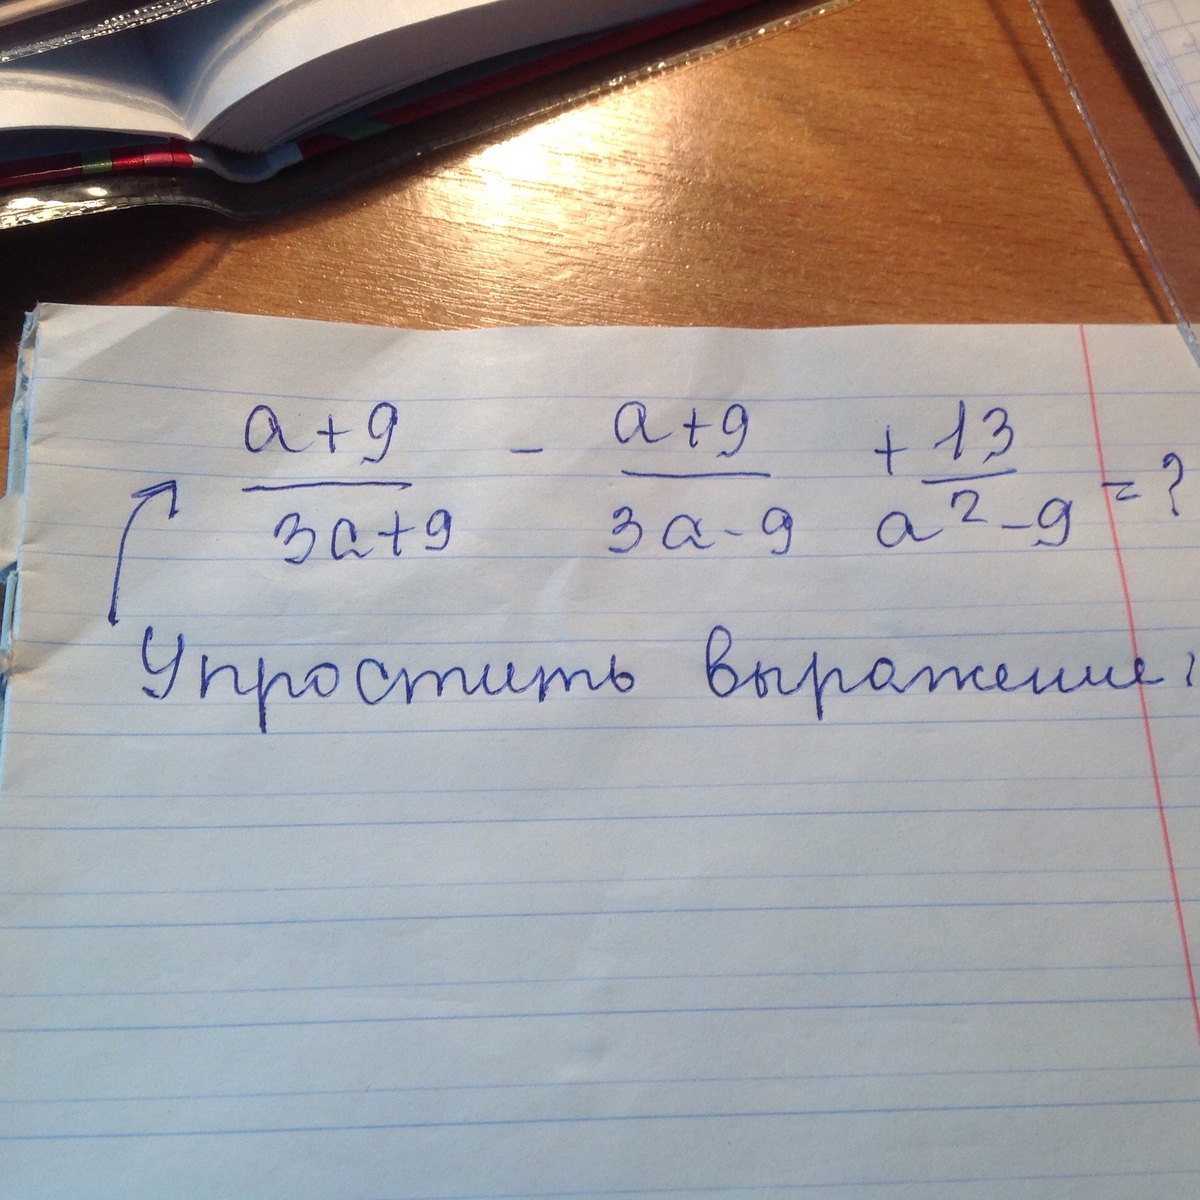 a+9/3a+9 - a+9/3a-9 + 13/a²-9 = ?
Упростить выражение: